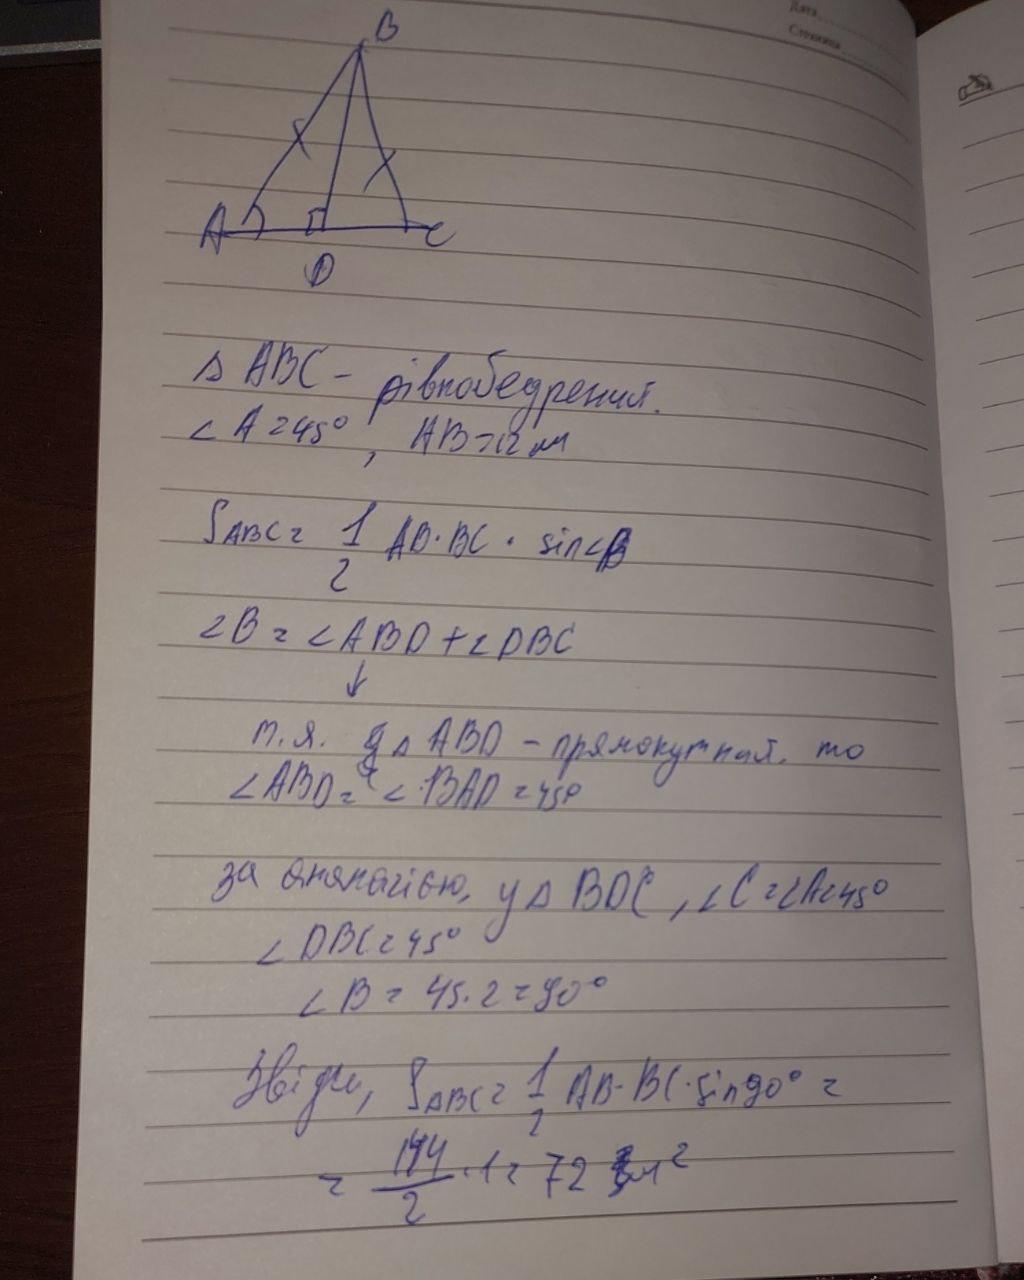 Дата
Сторінка
B
A
C
D
△ ABC - рівнобедрений.
∠A = 45°, AB = 12 м
S△ABC = 1/2 AB · BC · sin∠B
∠B = ∠ABD + ∠DBC
↓
т.я. △ ABD - прямокутний, то
∠ABD = ∠BAD = 45°
за аналогією, у △ BDC, ∠C = ∠A = 45°
∠DBC = 45°
∠B = 45·2 = 90°
Звідки, S△ABC = 1/2 AB · BC · sin90° =
= 144/2 · 1 = 72 м²